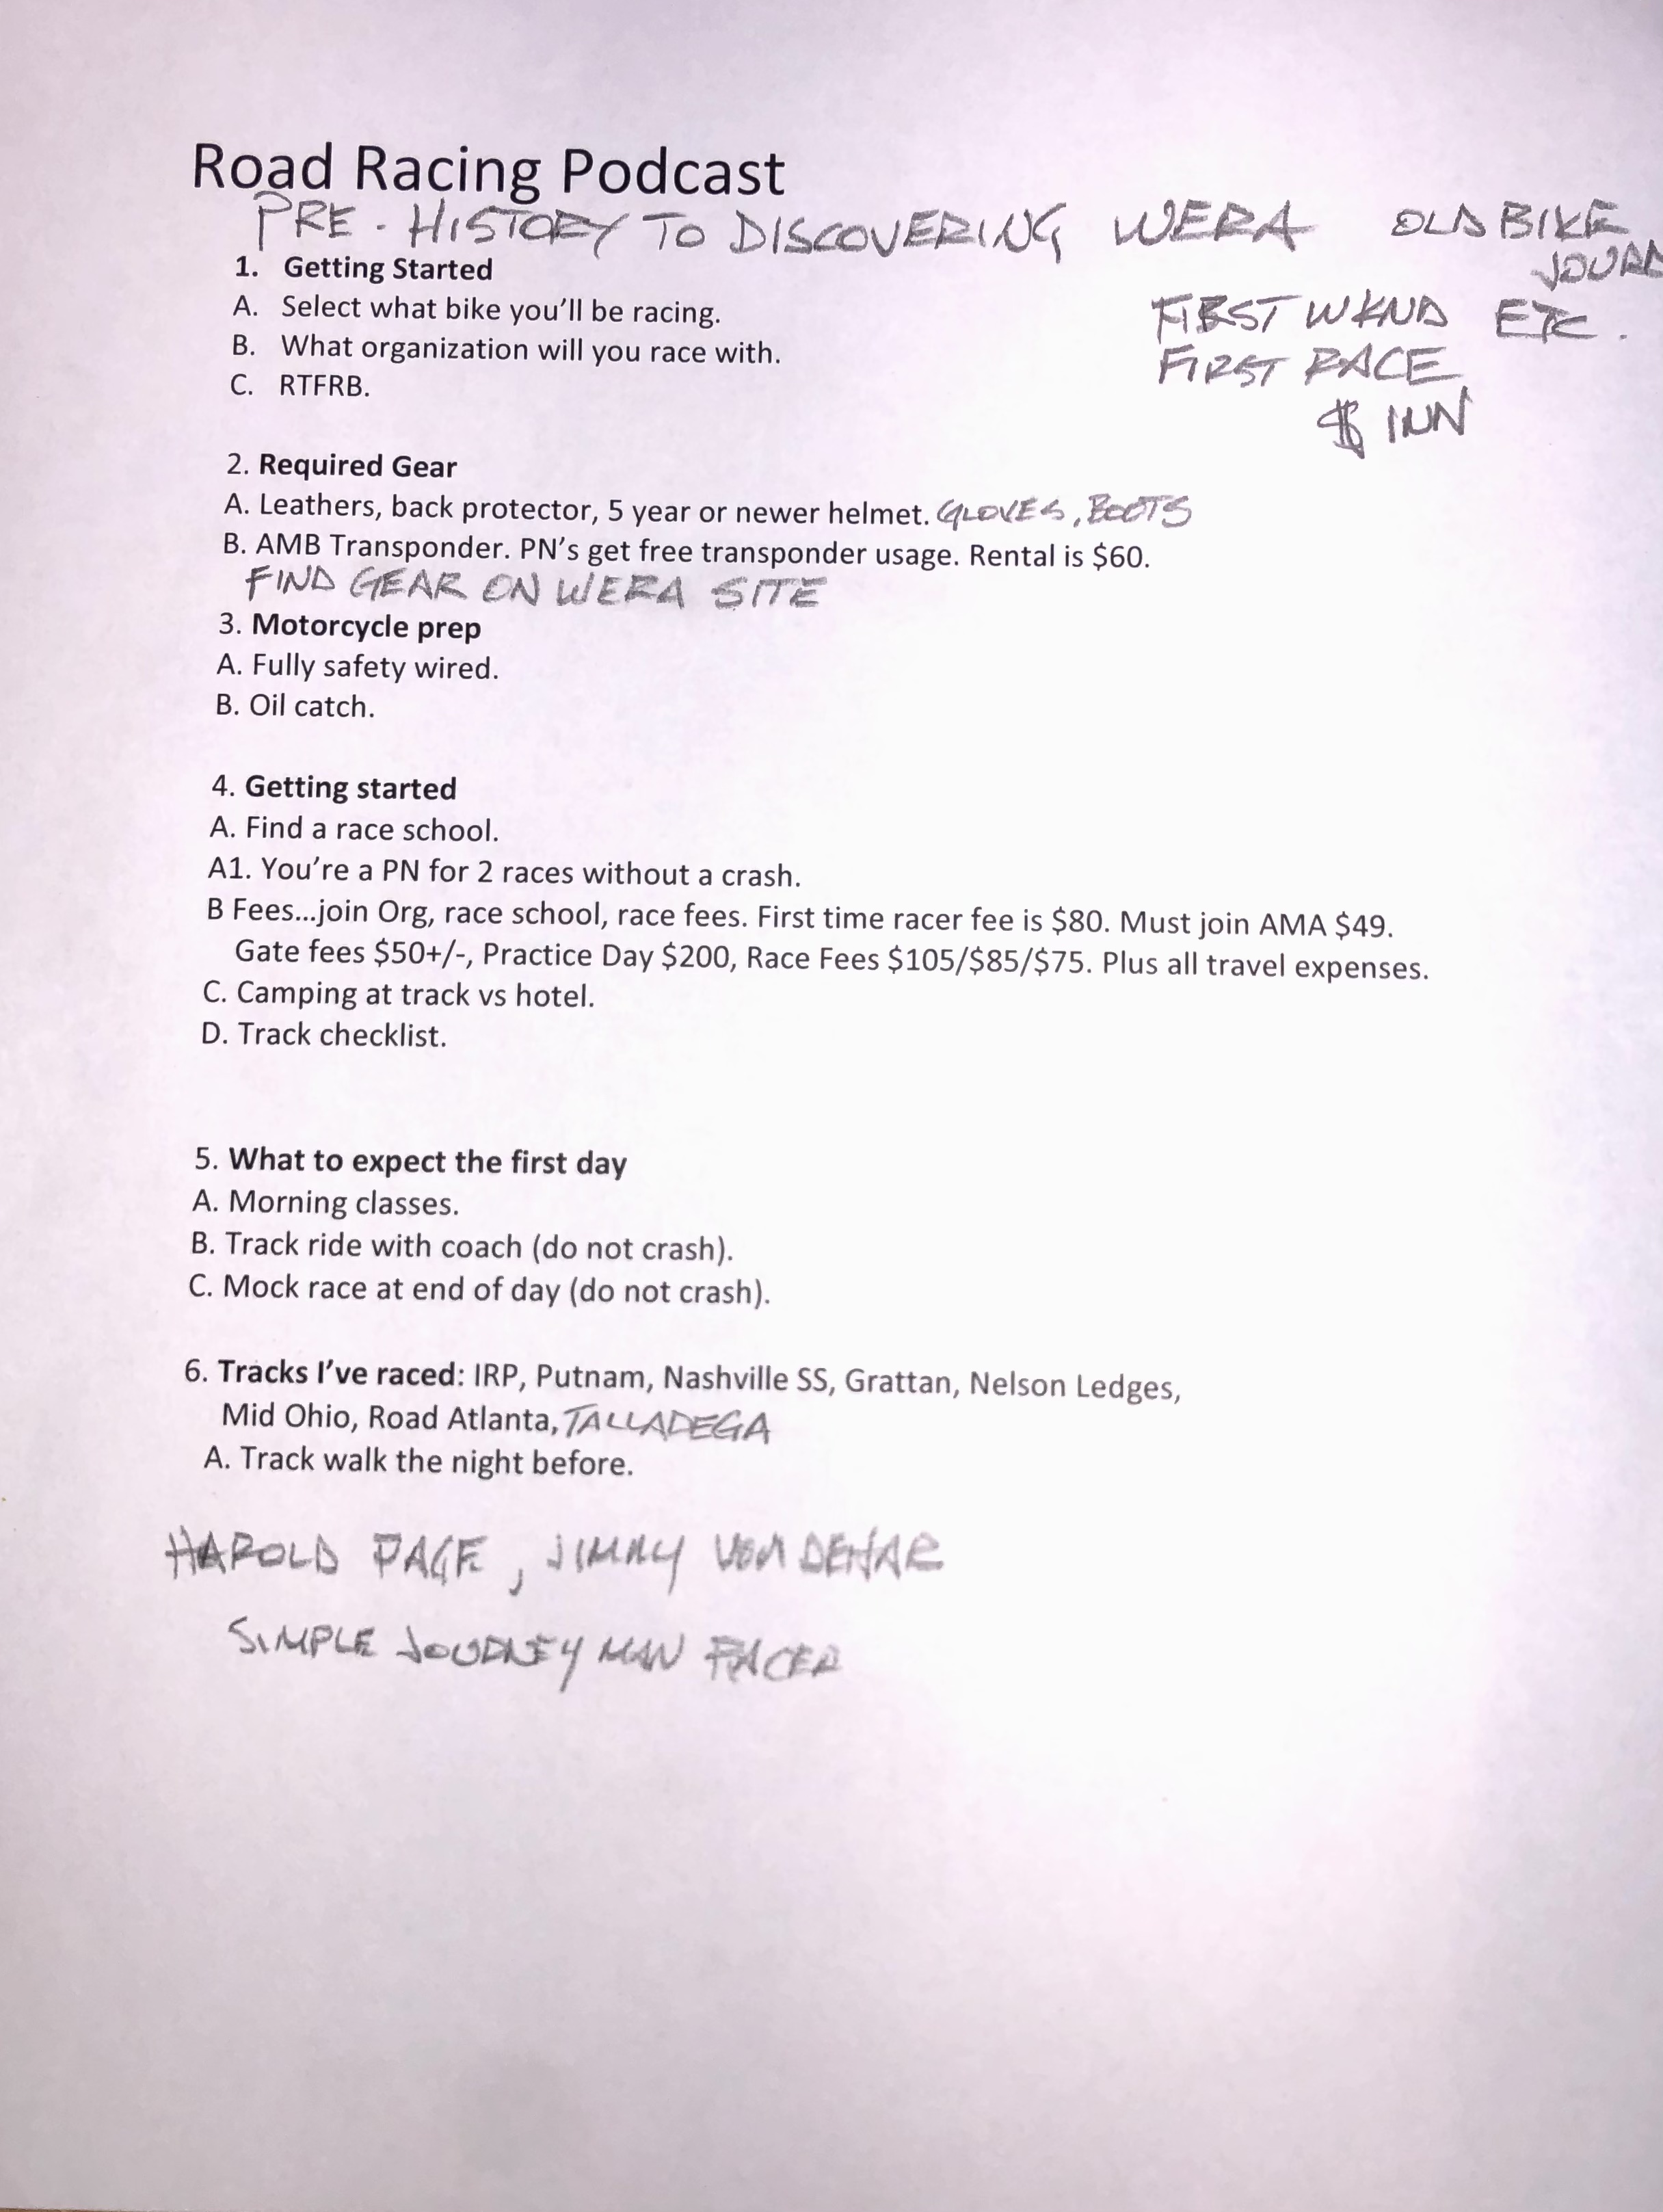 Road Racing Podcast
PRE - HISTORY TO DISCOVERING WERA OLD BIKE
JOURN
1. Getting Started
A. Select what bike you'll be racing.
FIRST WKND ETC.
B. What organization will you race with.
FIRST RACE
C. RTFRB.
$ INN
2. Required Gear
A. Leathers, back protector, 5 year or newer helmet. GLOVES, BOOTS
B. AMB Transponder. PN's get free transponder usage. Rental is $60.
FIND GEAR ON WERA SITE
3. Motorcycle prep
A. Fully safety wired.
B. Oil catch.
4. Getting started
A. Find a race school.
A1. You're a PN for 2 races without a crash.
B Fees...join Org, race school, race fees. First time racer fee is $80. Must join AMA $49.
Gate fees $50+/-, Practice Day $200, Race Fees $105/$85/$75. Plus all travel expenses.
C. Camping at track vs hotel.
D. Track checklist.
5. What to expect the first day
A. Morning classes.
B. Track ride with coach (do not crash).
C. Mock race at end of day (do not crash).
6. Tracks I've raced: IRP, Putnam, Nashville SS, Grattan, Nelson Ledges,
Mid Ohio, Road Atlanta, TALLADEGA
A. Track walk the night before.
HAROLD PAGE, JIMMY VONDEHAR
SIMPLE JOURNEY MAN RACER